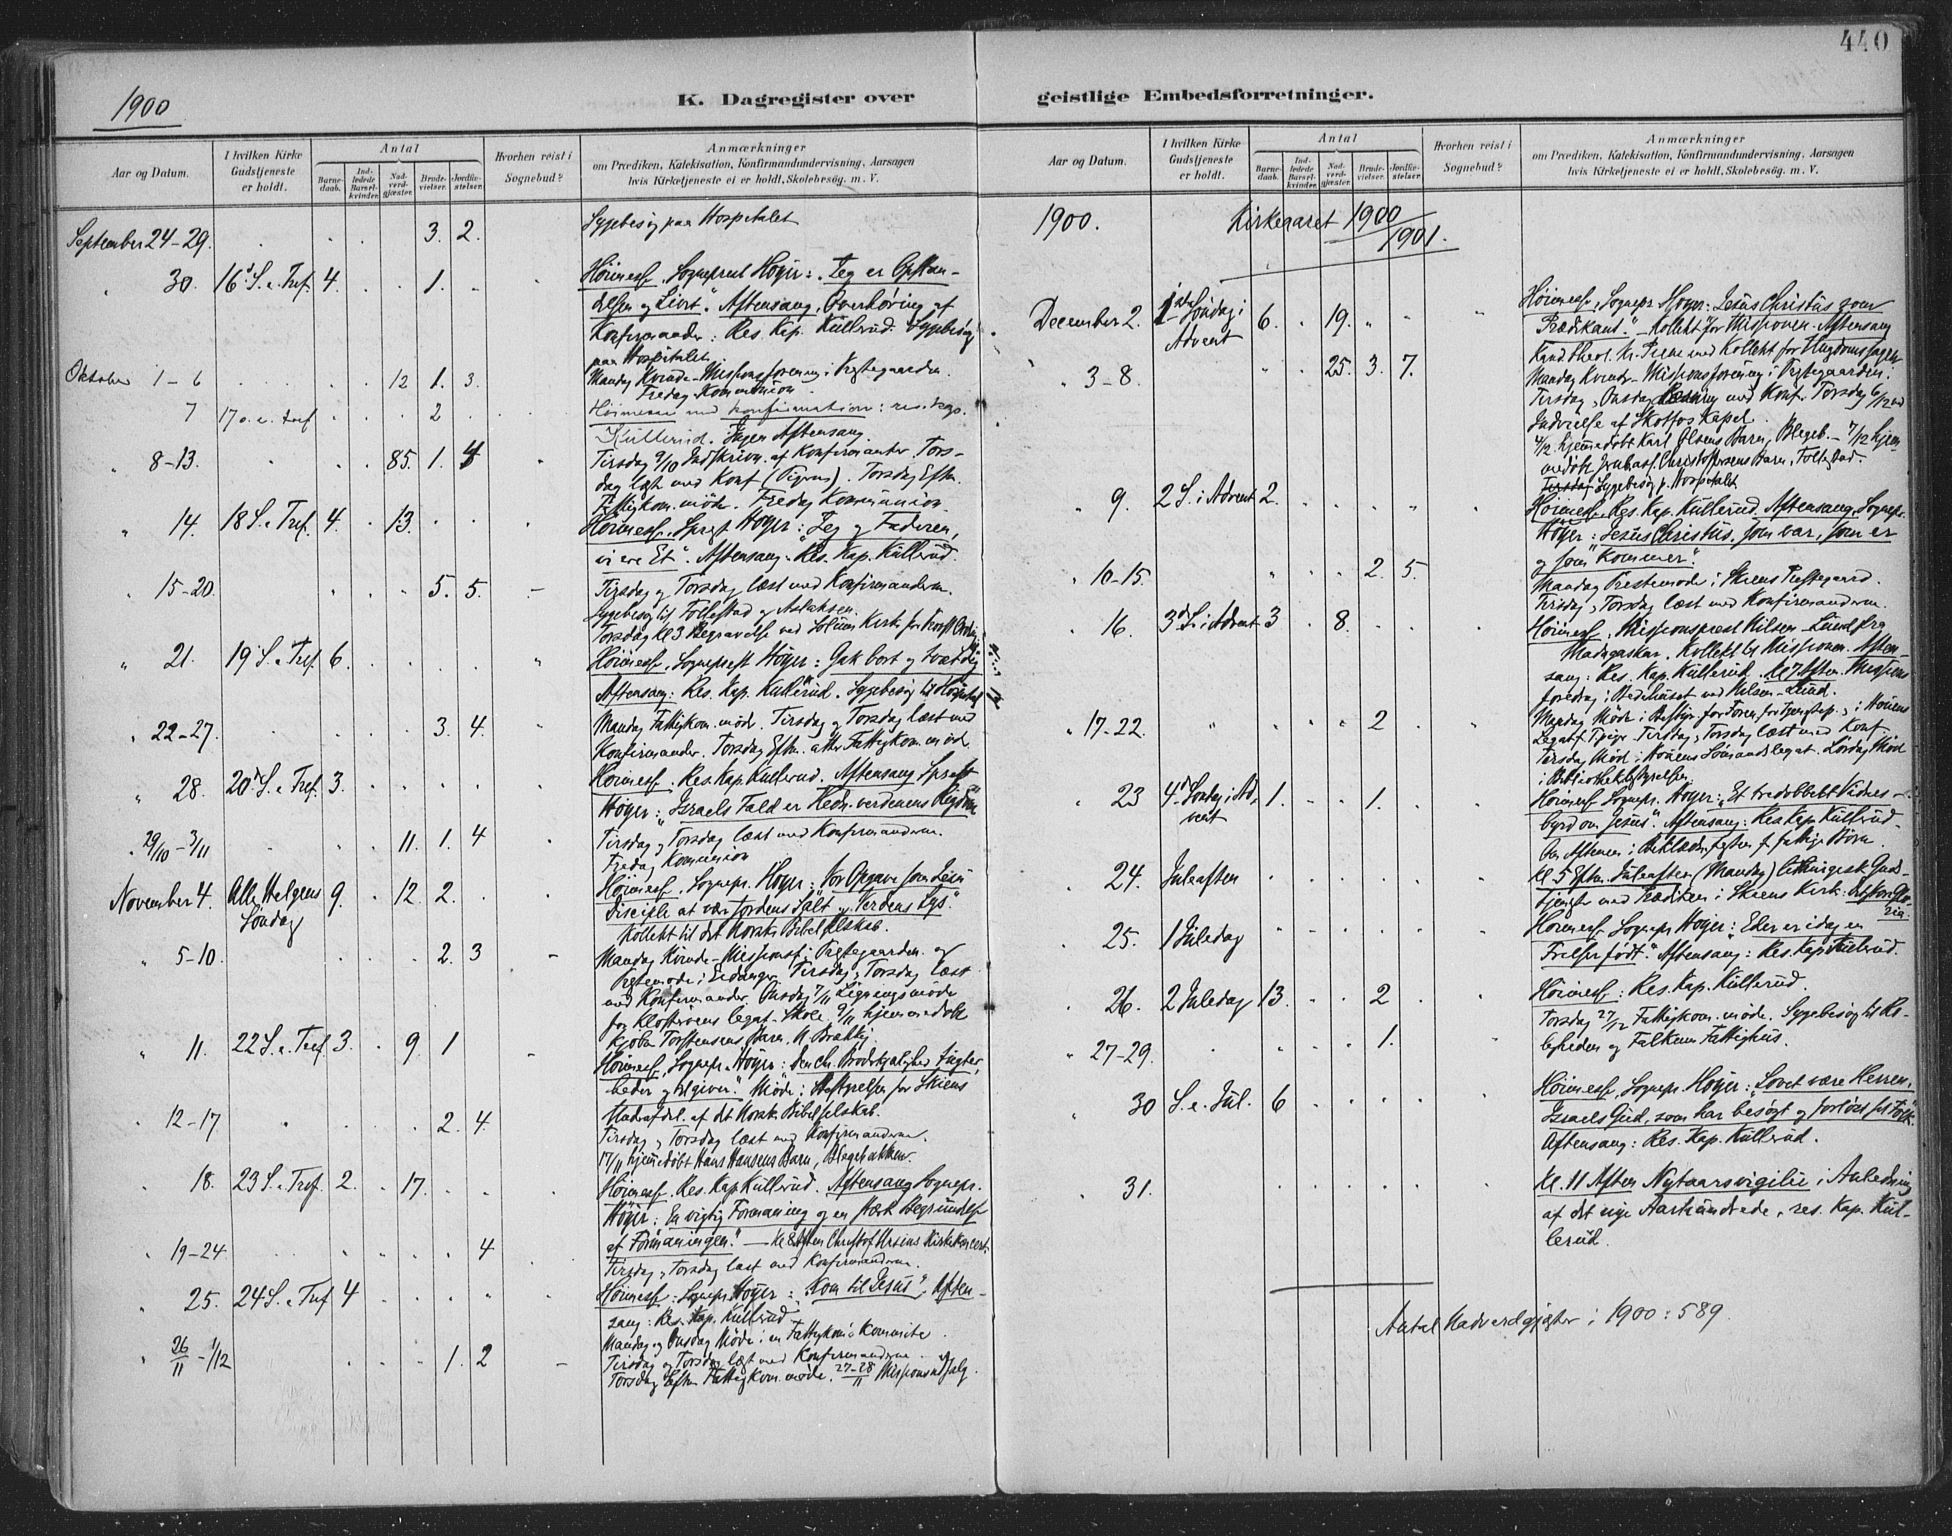 440
1900
K. Dagregister over geistlige Embedsforretninger.
Aar og Datum. I hvilken Kirke Gudstjeneste er holdt. Antal Barnedaab. Indledede Barselkvinder. Nadverdgjæster. Brudevielser. Jordfæstelser. Hvorhen reist i Sognebud? Anmærkninger om Prædiken, Katekisation, Konfirmandundervisning, Aarsagen hvis Kirketjeneste ei er holdt, Skolebesøg. m. V.
September 24-29. 3. 2. Sygebesøg paa Hospitalet
30. 16 S. e. Tref. 4. 1. Høimesse, Sogneprest Høyer: "Jeg er Opstan-
delsen og Livet". Aftensang, Overhøring af
Konfirmander: Res. Kap. Küllerud. Sygebesøg
paa Hospitalet
Oktober 1-6 12 1. 3. Mandag Kvinde-Missionsforening i Prestegaarden.
Fredag Kommunion
7 17 s. e. tref 2 Høimesse med konfirmation: res. kap.
Küllerud. Ingen Aftensang.
8-13. 85. 1. 4 Tirsdag 9/10 Indskrivn. af Konfirmanter. Tors-
dag læst med Konf. Torsdag Efm.
Fattigkom.møde. Fredag Kommunion.
14. 18 S. e. Tref. 4. 13. Høimesse, Sprest Høyer: "Jeg og Faderen,
vi ere Et". Aftensang: Res. Kap. Küllerud.
15-20. 5. 5. Tirsdag og Torsdag læst med Konfirmanderne.
Sygebesøg til Follestad og Aslaksen.
Torsdag Kl 3 Begravelse ved Solum Kirke for
21. 19 S. e. Tref. 6. Høimesse, Sogneprest Høyer: Gak bort og
Aftensang: Res. Kap. Küllerud. Sygebesøg til Hospital
22-27. 3. 4. Mandag Fattigkom.møde. Tirsdag og Torsdag læst med
Konfirmander. Torsdag Efm. atter Fattigkom.møde
28. 20 S. e. Tref. 3. Høimesse. Res. Kap. Küllerud. Aftensang Sprest
Høyer: "Israels Fald er Hedn.verdenens Rigdom"
29/10 - 3/11 11. 1. 4 Tirsdag og Torsdag læst med Konfirmanderne.
Fredag Kommunion
November 4. Alle Helgens 9. 12. 2. Høimesse. Sognepr. Høyer: Vor Opgave som Jesu
Søndag Disciple at være "Jordens Salt" og "Verdens Lys"
Kollekt til det Norske Bibelselskab.
5-10. 2. 3 Mandag Kvinde-Missionsf. i Prestegaarden og
Prestemøde i Eidanger. Tirsdag og Torsdag læst
med Konfirmander. Onsdag 7/11 Ligningsmøde
for Klosterøens legat-Skole. 9/11 hjemmedøbt
Torstensens Barn,
11. 22 S. e. Tref 3. 9 1 Høimesse, Sognepr. Høyer:
Møde i Bestyrelsen for Skiens
12-17 2. 4. Underafdel. af det Norske Bibelselskab.
Tirsdag og Torsdag læst med Konfirmanderne.
17/11 hjemmedøbt Hans Hansens Barn, Blegebakken.
18. 23 S. e. Tref. 2. 17. Høimesse. Res. Kap Küllerud. Aftensang Sognepr.
Høyer: En vigtig Formaning og en stærk Begrundelse
19-24. 4 af Formaningen." - Kl 8 Aften Christof Ursins Kirkekoncert.
Tirsdag og Torsdag læst med Konfirmanderne.
25. 24 S. e. Tref 4 Høimesse: Sognepr. Høyer: "Kom til Jesus"; Aften-
sang: Res. Kap. Küllerud
Mandag og Onsdag Møde i en Fattigkom.s Komite.
26/11 - 1/12 1. 2 Tirsdag og Torsdag læst med Konfirmanderne.
Torsdag Efm Fattigkom.møde. 27-28/11 Missionsudsalg.
Aar og Datum. I hvilken Kirke Gudstjeneste er holdt. Antal Barnedaab. Indledede Barselkvinder. Nadverdgjæster. Brudevielser. Jordfæstelser. Hvorhen reist i Sognebud? Anmærkninger om Prædiken, Katekisation, Konfirmandundervisning, Aarsagen hvis Kirketjeneste ei er holdt, Skolebesøg. m. V.
1900. Kirkeaaret 1900/1901.
December 2. 1ste Søndag i 6. 19. Høimesse, Sognepr. Høyer: "Jesus Christus som
Advent Prædikant." - Kollekt for Missionen. Aftensang
med Kollekt for Ungdomssagen
3-8. 25. 3. 7. Mandag Kvinde-Missionsforening i Prestegaarden.
Tirsdag, Onsdag Læsning med Konf. Torsdag 6/12 ved
Indvielse af Skotfos Kapel.
4/12 hjemmedøbt Karl Olsens Barn, Blegeb. - 7/12 hjem-
medøbt Christoffersens Barn, Follestad.
Tirsdag Sygebesøg p. Hospitalet
9. 2 S. i Advent 2. Høimesse. Res. Kap. Küllerud. Aftensang, Sognepr.
Høyer: Jesus Christus, som var, som er
og som "Kommer".
10-15. 2. 5. Mandag Prestemøde i Skiens Prestegaard.
Tirsdag, Torsdag læst med Konfirmanderne.
16. 3 S. i Advent 3 8. Høimesse, Missionsprest Nilsen-Lund fra
Madagaskar. Kollekt til Missionen. Aften-
sang: Res. Kap. Küllerud. Kl 7 Aften Missions
foredrag i Bedehuset ved Nilsen-Lund.
17-22. 2 Mandag Møde i Bestyr. for
Tirsdag, Torsdag læst med Konf.
Tirsdag Møde i Sømandslegat. Lørdag Møde
i Bibliotheksbestyrelsen
23 4 Søndag i Ad- 1. 1. Høimesse Sognepr. Høyer: "Et tredobbelt Vidnes-
vent byrd om Jesus". Aftensang: Res. Kap Küllerud.
Om Aftenen i f. fattige Børn.
24. Juleaften Kl. 5 Efm. Juleaften (Mandag) lithurgisk Guds-
tjeneste med Prædiken i Skiens Kirke:
25. 1 Juledag Høimesse Sognepr. Høyer: Eder er idag en
Frelser født". Aftensang: Res. Kap Küllerud.
26. 2 Juledag 13. 2 Høimesse: Res. Kap. Küllerud.
27-29. 1. Torsdag 27/12 Fattigkom.møde. Sygebesøg til
og Falkum Fattighus.
30 S. e. Jul. 6 Høimesse, Sognepr. Høyer: "Lovet være Herren,
Israels Gud, som har besøgt og forløst sit Folk".
Aftensang: Res. Kap. Küllerud.
31. Kl. 11 Aften Nytaarsvigilie i Anledning
af det nye Aarhundrede, res. Kap. Kül-
lerud.
Antal Nadverdgjæster i 1900: 589.